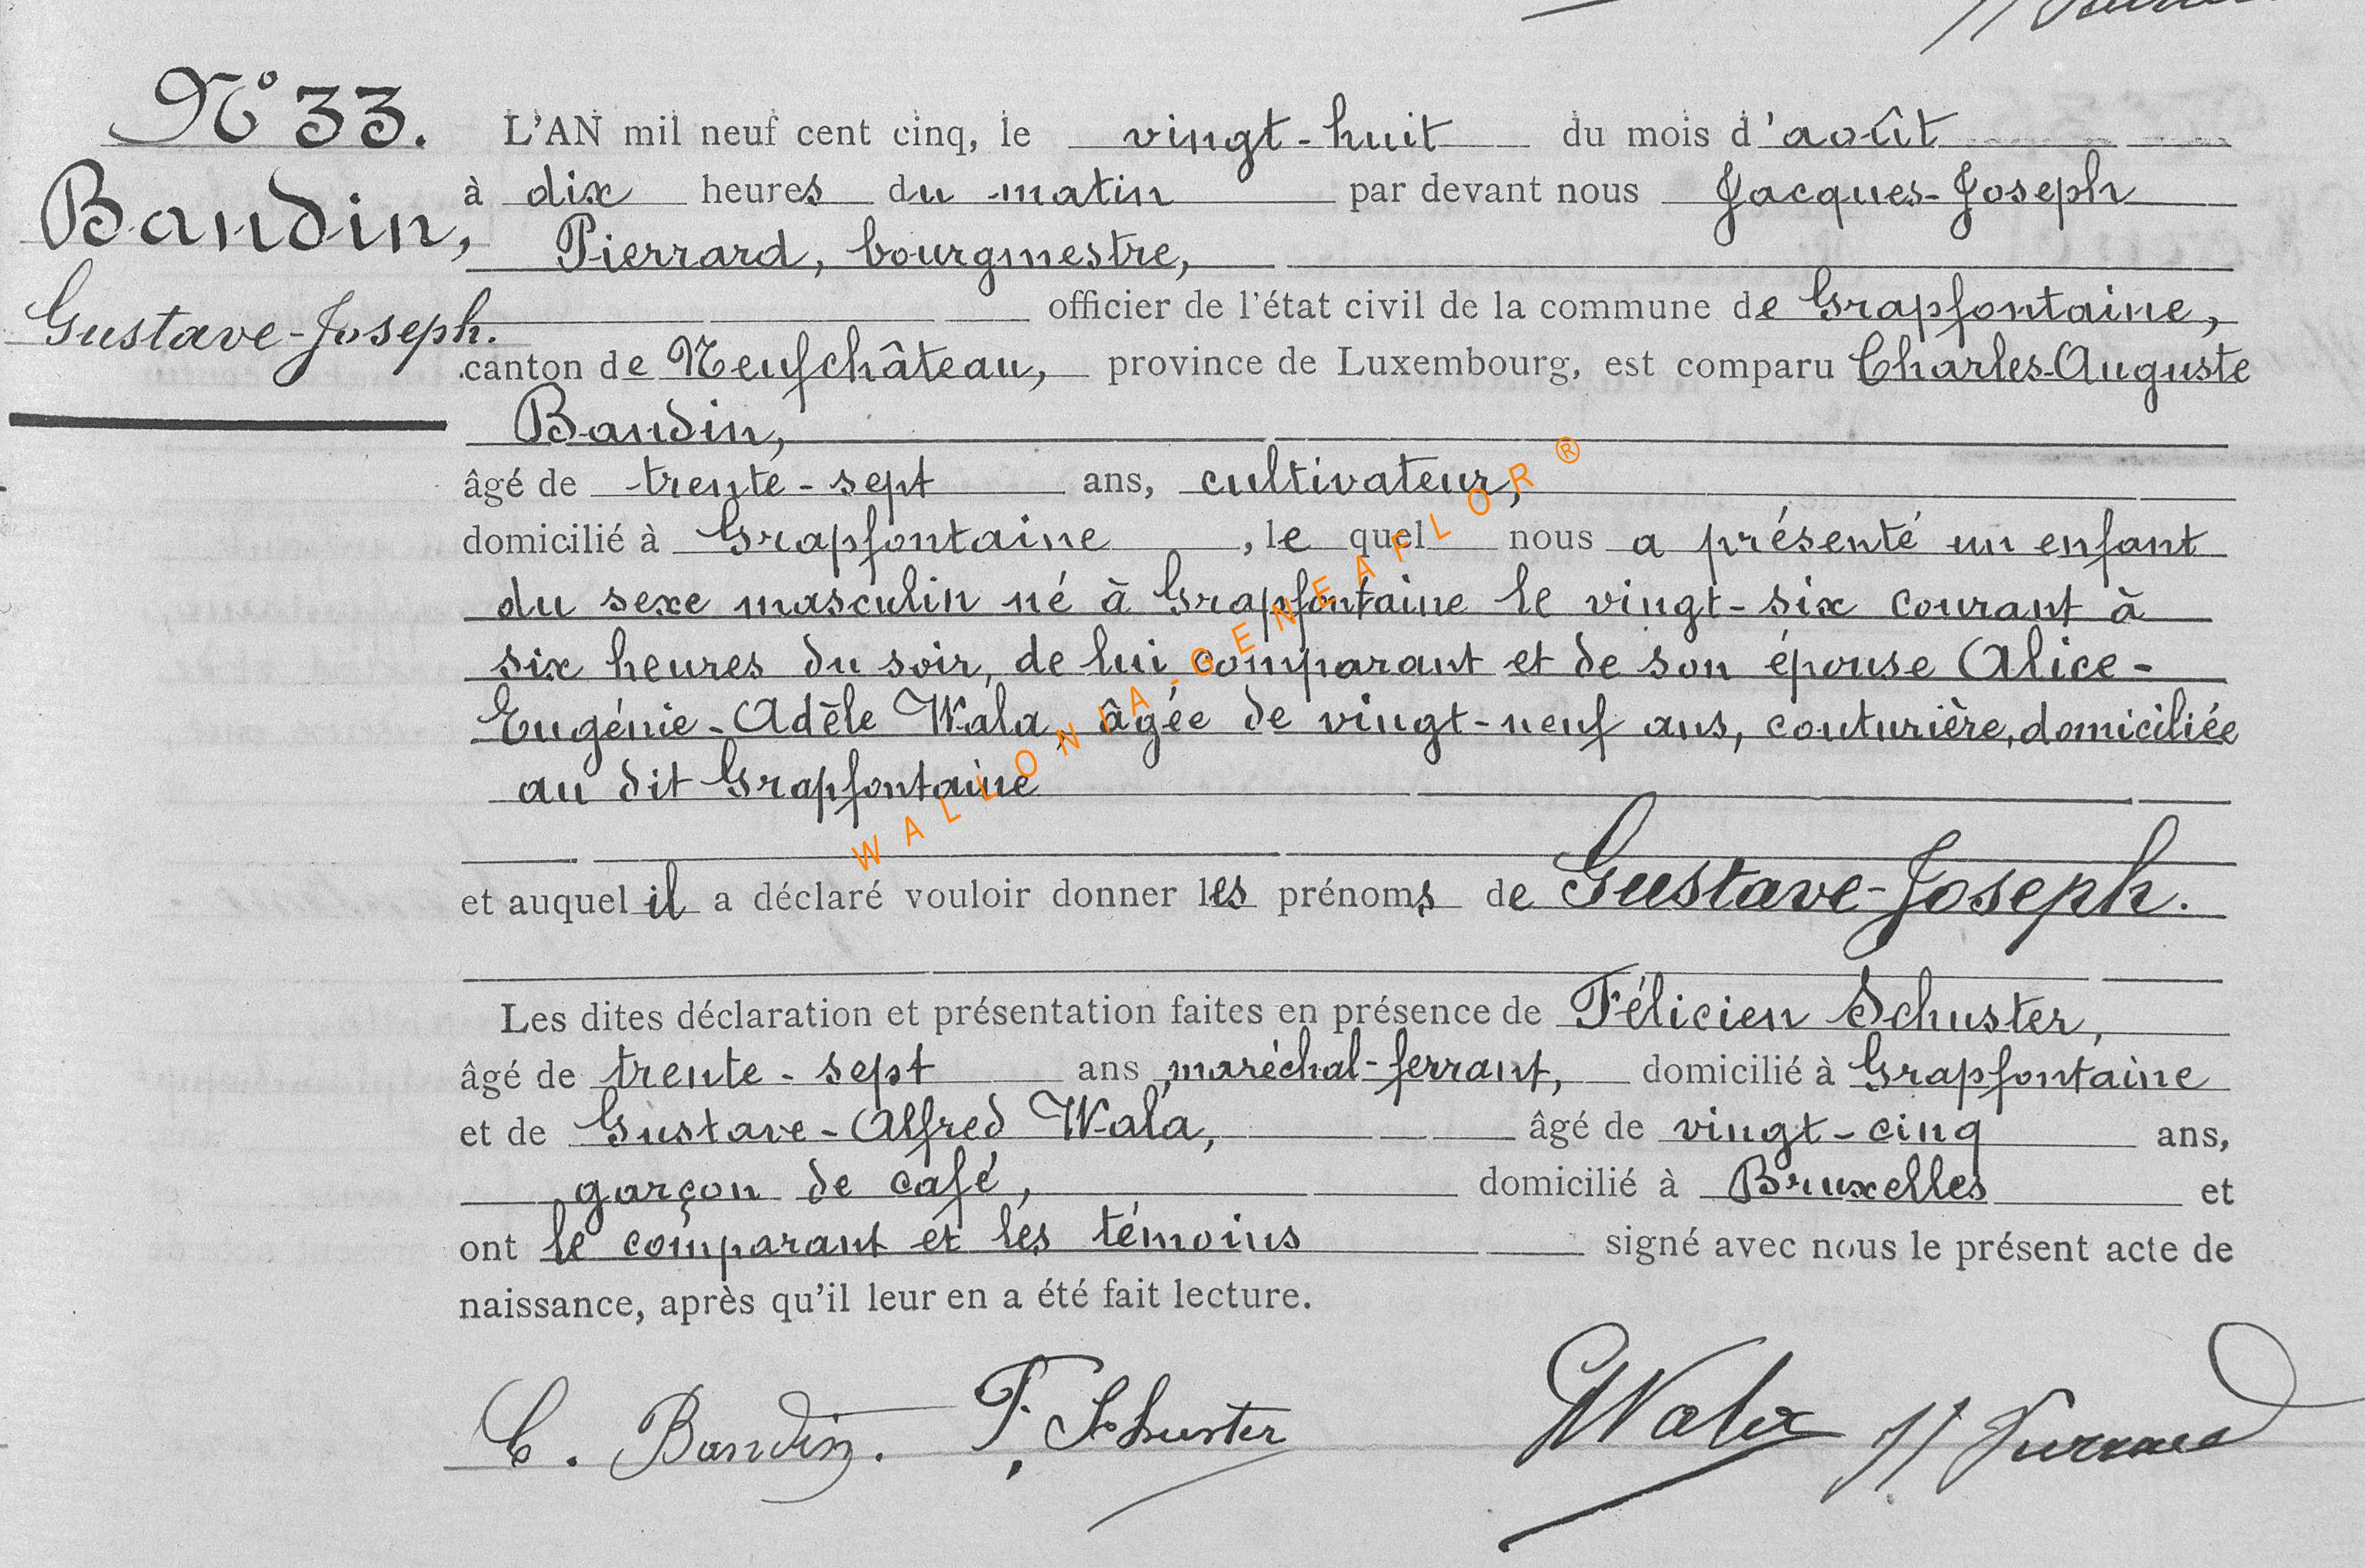 N° 33.
Baudin,
Gustave-Joseph.
L'AN mil neuf cent cinq, le vingt-huit du mois d'août
à dix heures du matin par devant nous Jacques-Joseph
Pierrard, bourgmestre,
officier de l'état civil de la commune de Grapfontaine,
canton de Neufchâteau, province de Luxembourg, est comparu Charles-Auguste
Baudin,
âgé de trente-sept ans, cultivateur,
domicilié à Grapfontaine, le quel nous a présenté un enfant
du sexe masculin né à Grapfontaine le vingt-six courant à
six heures du soir, de lui comparant et de son épouse Alice-
Eugénie-Adèle Wala, âgée de vingt-neuf ans, couturière, domiciliée
au dit Grapfontaine
et auquel il a déclaré vouloir donner les prénoms de Gustave-Joseph.
Les dites déclaration et présentation faites en présence de Félicien Schuster,
âgé de trente-sept ans, maréchal-ferrant, domicilié à Grapfontaine
et de Gustave-Alfred Wala, âgé de vingt-cinq ans,
garçon de café, domicilié à Bruxelles et
ont le comparant et les témoins signé avec nous le présent acte de
naissance, après qu'il leur en a été fait lecture.
C. Baudin. F. Schuster GWala JJ Pierrard
WALLONIA-GENEAFLOR®